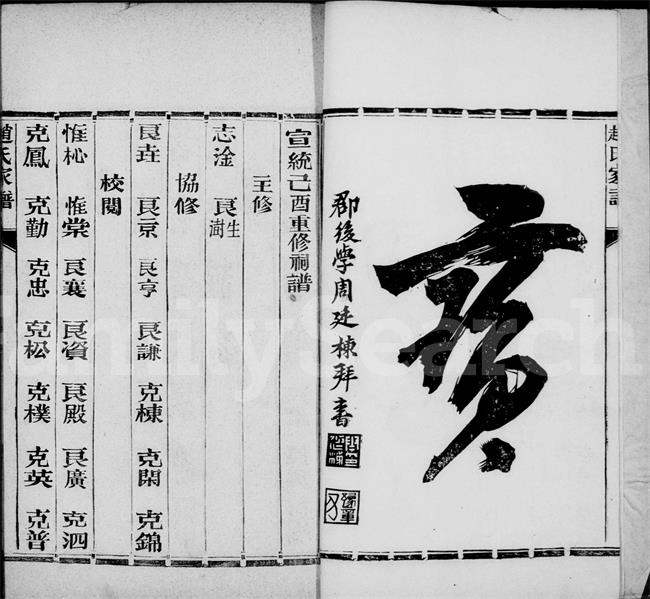 趙氏家譜
亥
郡後學周廷棟拜書
宣統己酉重修祠譜
主修
志淦 良生 良澍
協修
良垚 良京 良亨 良謙 克棟 克閑 克錦
校閱
惟杺 惟棠 良襄 良資 良殿 良廣 克泗
克鳳 克勤 克忠 克松 克樸 克英 克普
趙氏家譜
FamilySearch